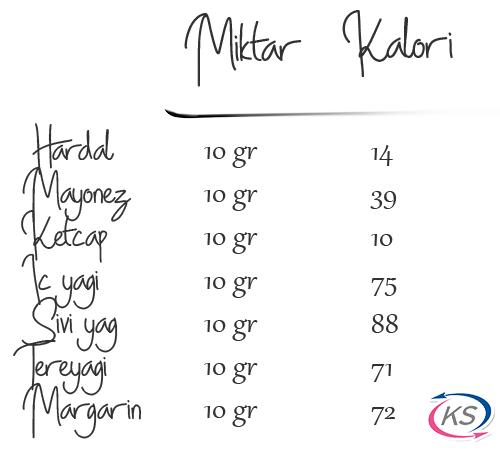 Miktar Kalori
Hardal 10 gr 14
Mayonez 10 gr 39
Ketcap 10 gr 10
Ic yagi 10 gr 75
Sivi yag 10 gr 88
Tereyagi 10 gr 71
Margarin 10 gr 72
KS